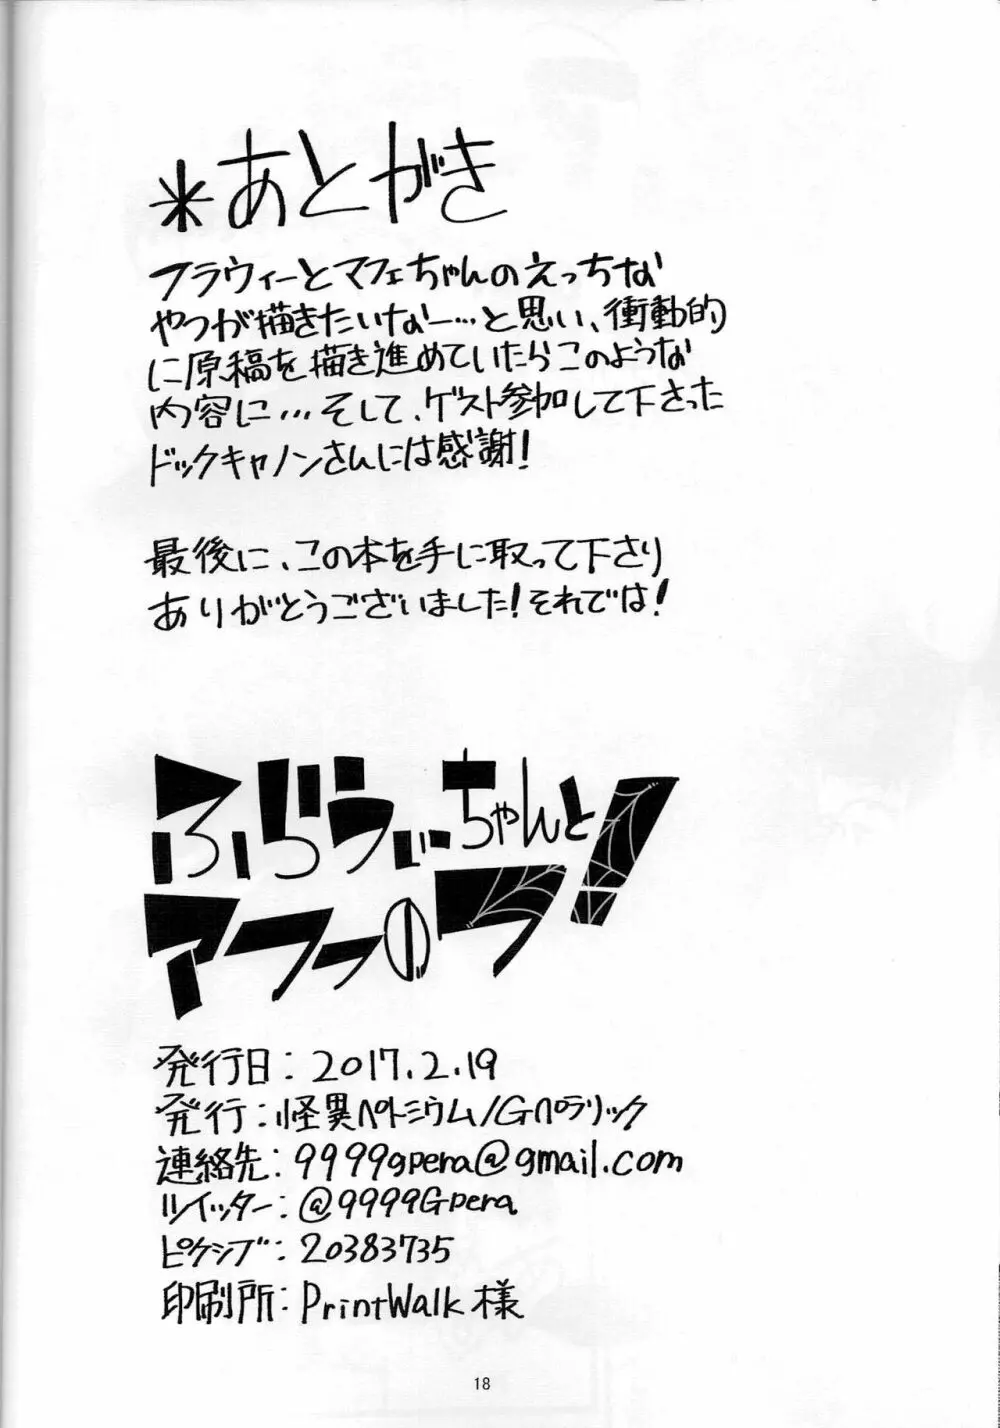 *あとがき
フラウィーとマフェちゃんのえっちな
やつが描きたいなー…と思い、衝動的
に原稿を描き進めていたらこのような
内容に…そして、ゲスト参加して下さった
ドックキャノンさんには感謝!
最後に、この本を手に取って下さり
ありがとうございました!それでは!
ふらうぃーちゃんと
アフーのラ!
発行日:2017.2.19
発行:怪異ペトミウム/Gペラリック
連絡先:9999gpera@gmail.com
ツイッター:@9999Gpera
ピクシブ:20383735
印刷所:PrintWalk様
18